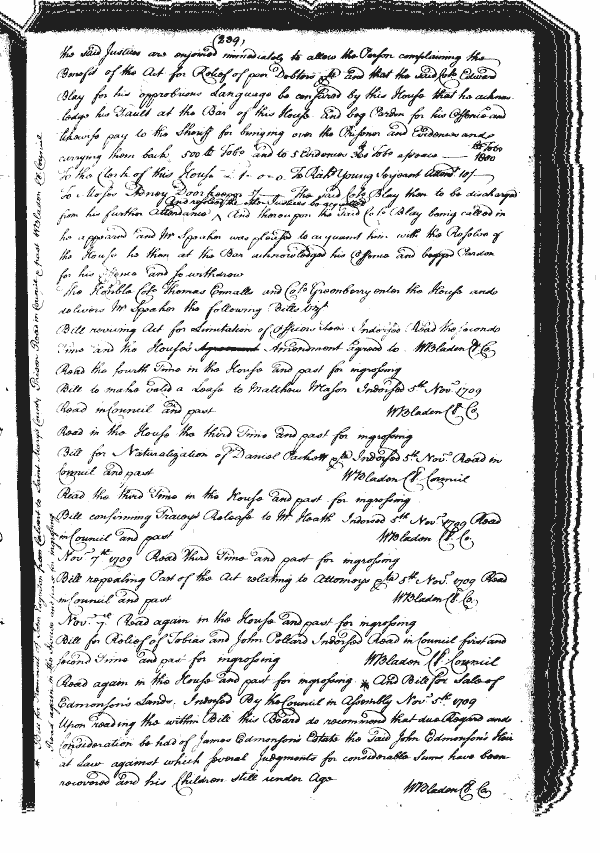 (239)
the said Justices are enjoyned immediately to allow the Person complaining the
Benefit of the Act for Relief of poor Debtors &c And that the said Colo Edward
Blay for his opprobrious Language be censured by this House that he acknow
ledge his Fault at the Bar of this House And beg Pardon for his Offence and
likewise pay to the Sheriff for bringing over the Prisoner and Evidences and
carrying them back 500 lb Tobo and to 5 Evidences Tobo apeace — 1800
To the Clerk of this House To Richd Young Serjeant Attendt 10/
To Moses Adney Doorkeeper The said Colo Blay then to be discharged
from his further Attendance ^ And thereupon the said Colo Blay being called in
he appeared and Mr Speaker was pleased to acquaint him with the Resolve of
the House he then at the Bar acknowledged his Offence and begged Pardon
for his and so withdrew
The Honble Colo Thomas Ennalls and Colo Greenberry enter the House and
delivers Mr Speaker the following Bills Vizt
Bill reviving Act for Limitation of Officers Fees Indorsed Read the second
Time and the House's Agreement Amendment agreed to WBladen Cl Co
Read the fourth Time in the House and past for ingrossing
Bill to make valid a Lease to Matthew Mason Indorsed 5th Novr 1709
Read in Council and past WBladen Cl Co
Read in the House the third Time and past for ingrossing
Bill for Naturalization of Daniel &c Indorsed 5th Novr Read in
Council and past WBladen Cl Council
Read the third Time in the House and past for ingrossing
Bill confirming Traceys Release to Mr Heath Indorsed 5th Novr 1709 Read
in Council and past WBladen Cl Co
Novr 7th 1709 Read third Time and past for ingrossing
Bill repealing Part of the Act relating to Attorneys &ca 5th Novr 1709 Read
in Council and past WBladen Cl Co
Novr 7th Read again in the House and past for ingrossing
Bill for Relief of Tobias and John Pollard Indorsed Read in Council first and
second Time and past for ingrossing WBladen Cl Council
Read again in the House and past for ingrossing * And Bill for Sale of
Edmonson's Lands. Indorsed By the Council in Assembly Novr 5th 1709
Upon reading the within Bill this Board do recommend that due Regard and
Consideration be had of James Edmonson's Estate the said John Edmonson's Heir
at Law against which several Judgments for considerable Sums have been
recovered and his Children still under Age
WBladen Cl Co